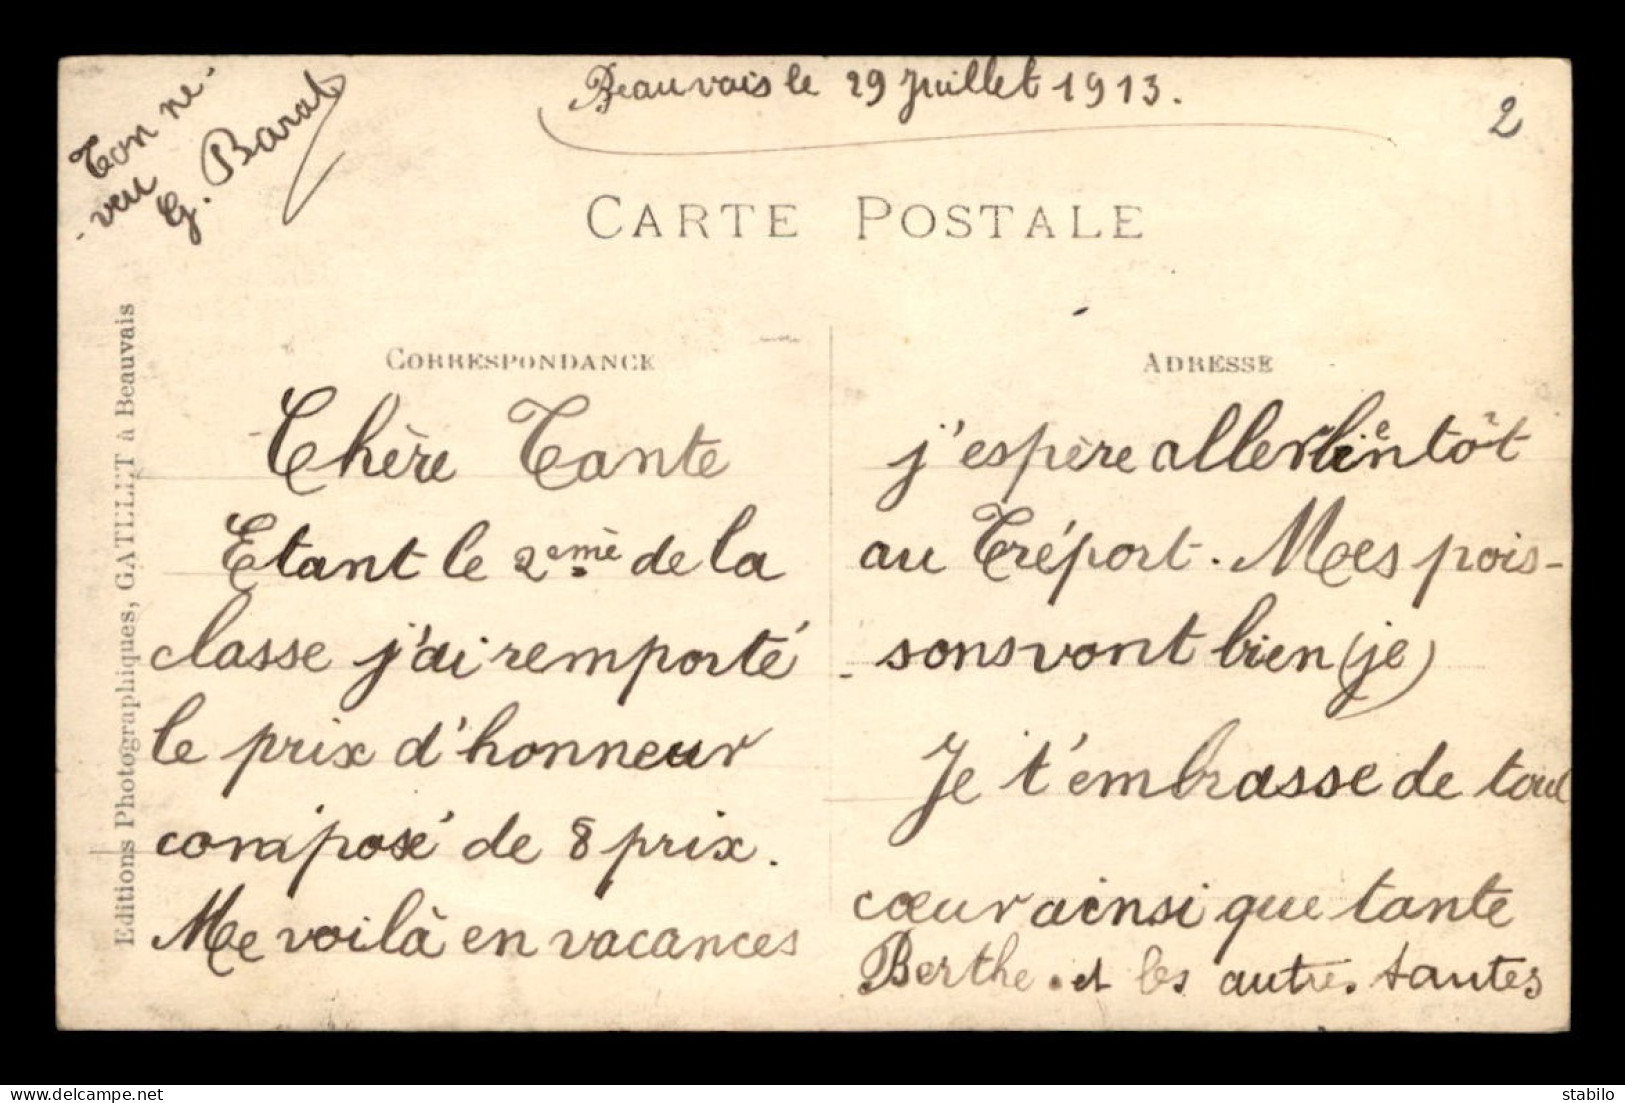 Beauvais le 29 Juillet 1913.
2
Ton ne-
-veu
G. Barat
CARTE POSTALE
Editions Photographiques, GATLLET à Beauvais
CORRESPONDANCE
Chère Tante
Etant le 2emè de la
classe j'ai remporté
le prix d'honneur
composé de 8 prix.
Me voilà en vacances
ADRESSE
j'espère aller bientôt
au Tréport. Mes pois-
sons vont bien (je)
Je t'embrasse de tout
cœur ainsi que tante
Berthe. et les autres tantes
stabilo